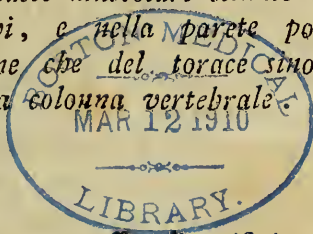 pi, e nella parete po
ne che del torace sino
a colouna vertebrale.
BOSTON MEDICAL
MAR 12 1910
LIBRARY.